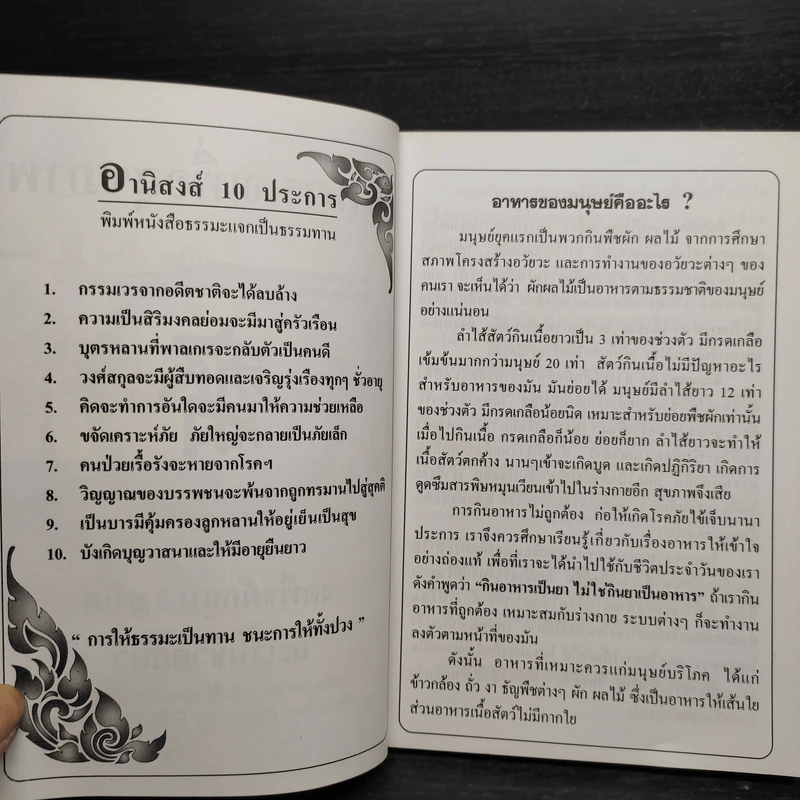 อานิสงส์ 10 ประการ
พิมพ์หนังสือธรรมะแจกเป็นธรรมทาน
1. กรรมเวรจากอดีตชาติจะได้ลบล้าง
2. ความเป็นสิริมงคลย่อมจะมีมาสู่ครัวเรือน
3. บุตรหลานที่พาลเกเรจะกลับตัวเป็นคนดี
4. วงศ์สกุลจะมีผู้สืบทอดและเจริญรุ่งเรืองทุกๆ ชั่วอายุ
5. คิดจะทำการอันใดจะมีคนมาให้ความช่วยเหลือ
6. ขจัดเคราะห์ภัย ภัยใหญ่จะกลายเป็นภัยเล็ก
7. คนป่วยเรื้อรังจะหายจากโรคฯ
8. วิญญาณของบรรพชนจะพ้นจากถูกทรมานไปสู่สุคติ
9. เป็นบารมีคุ้มครองลูกหลานให้อยู่เย็นเป็นสุข
10. บังเกิดบุญวาสนาและให้มีอายุยืนยาว
“ การให้ธรรมะเป็นทาน ชนะการให้ทั้งปวง ”
อาหารของมนุษย์คืออะไร ?
มนุษย์ยุคแรกเป็นพวกกินพืชผัก ผลไม้ จากการศึกษา
สภาพโครงสร้างอวัยวะ และการทำงานของอวัยวะต่างๆ ของ
คนเรา จะเห็นได้ว่า ผักผลไม้เป็นอาหารตามธรรมชาติของมนุษย์
อย่างแน่นอน
ลำไส้สัตว์กินเนื้อยาวเป็น 3 เท่าของช่วงตัว มีกรดเกลือ
เข้มข้นมากกว่ามนุษย์ 20 เท่า สัตว์กินเนื้อไม่มีปัญหาอะไร
สำหรับอาหารของมัน มันย่อยได้ มนุษย์มีลำไส้ยาว 12 เท่า
ของช่วงตัว มีกรดเกลือน้อยนิด เหมาะสำหรับย่อยพืชผักเท่านั้น
เมื่อไปกินเนื้อ กรดเกลือก็น้อย ย่อยก็ยาก ลำไส้ยาวจะทำให้
เนื้อสัตว์ตกค้าง นานๆเข้าจะเกิดบูด และเกิดปฏิกิริยา เกิดการ
ดูดซึมสารพิษหมุนเวียนเข้าไปในร่างกายอีก สุขภาพจึงเสีย
การกินอาหารไม่ถูกต้อง ก่อให้เกิดโรคภัยไข้เจ็บนานา
ประการ เราจึงควรศึกษาเรียนรู้เกี่ยวกับเรื่องอาหารให้เข้าใจ
อย่างถ่องแท้ เพื่อที่เราจะได้นำไปใช้กับชีวิตประจำวันของเรา
ดังคำพูดว่า “กินอาหารเป็นยา ไม่ใช่กินยาเป็นอาหาร” ถ้าเรากิน
อาหารที่ถูกต้อง เหมาะสมกับร่างกาย ระบบต่างๆ ก็จะทำงาน
ลงตัวตามหน้าที่ของมัน
ดังนั้น อาหารที่เหมาะควรแก่มนุษย์บริโภค ได้แก่
ข้าวกล้อง ถั่ว งา ธัญพืชต่างๆ ผัก ผลไม้ ซึ่งเป็นอาหารให้เส้นใย
ส่วนอาหารเนื้อสัตว์ไม่มีกากใย